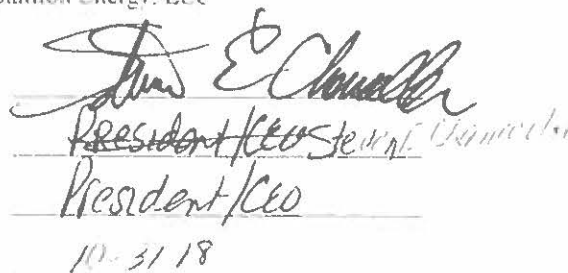 Energy, LLC
Steven E Chandler
President/CEO Steven E Chandler
President/CEO
10-31 18